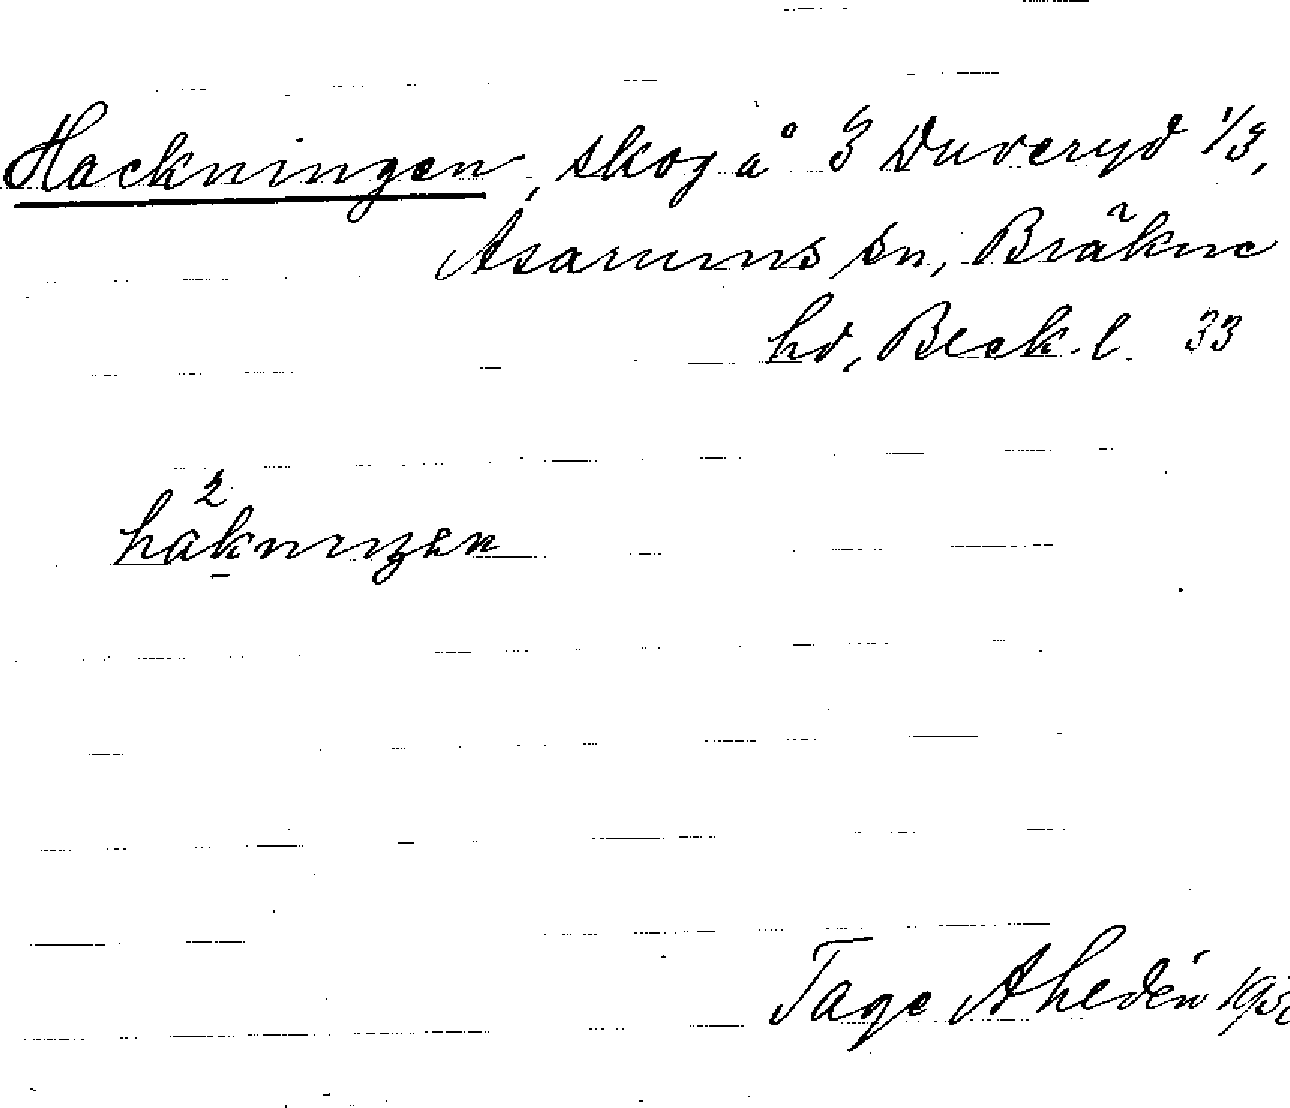 Hackningen, skog å Duveryd 1/3,
Asarums sn, Bräkne
hd, Blek. l. 33
håkningen
Tage Ahedén